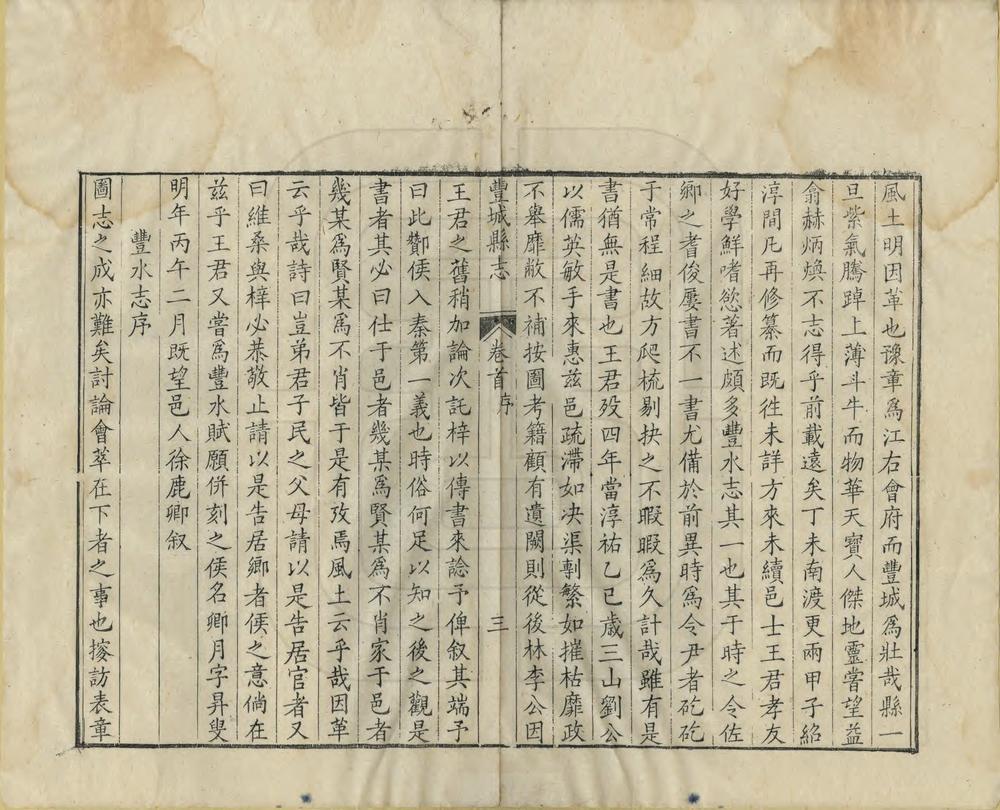 風土明因革也豫章爲江右會府而豐城爲壯哉縣一
旦紫氣騰踔上薄斗牛而物華天寶人傑地靈嘗望益
翁赫炳煥不志得乎前載遠矣丁未南渡更兩甲子紹
淳間凡再修纂而既徃未詳方來未續邑士王君孝友
好學鮮嗜慾著述頗多豐水志其一也其于時之令佐
鄉之耆俊屢書不一書尤備於前異時爲令尹者矻矻
于常程細故方爬梳剔抉之不暇暇爲久計哉雖有是
書猶無是書也王君歿四年當淳祐乙巳歲三山劉公
以儒英敏手來惠兹邑疏滯如決渠剸繁如摧枯靡政
不舉靡敝不補按圖考籍顧有遺闕則從後林李公因
豐城縣志
卷首
序
三
王君之舊稍加論次託梓以傳書來諗予俾叙其端予
曰此酇侯入秦第一義也時俗何足以知之後之觀是
書者其必曰仕于邑者幾某爲賢某爲不肖家于邑者
幾某爲賢某爲不肖皆于是有攷焉風土云乎哉因革
云乎哉詩曰豈弟君子民之父母請以是告居官者又
曰維桑與梓必恭敬止請以是告居鄉者侯之意倘在
兹乎王君又嘗爲豐水賦願併刻之侯名卿月字昇叟
明年丙午二月既望邑人徐鹿卿叙
豐水志序
圖志之成亦難矣討論會萃在下者之事也搜訪表章